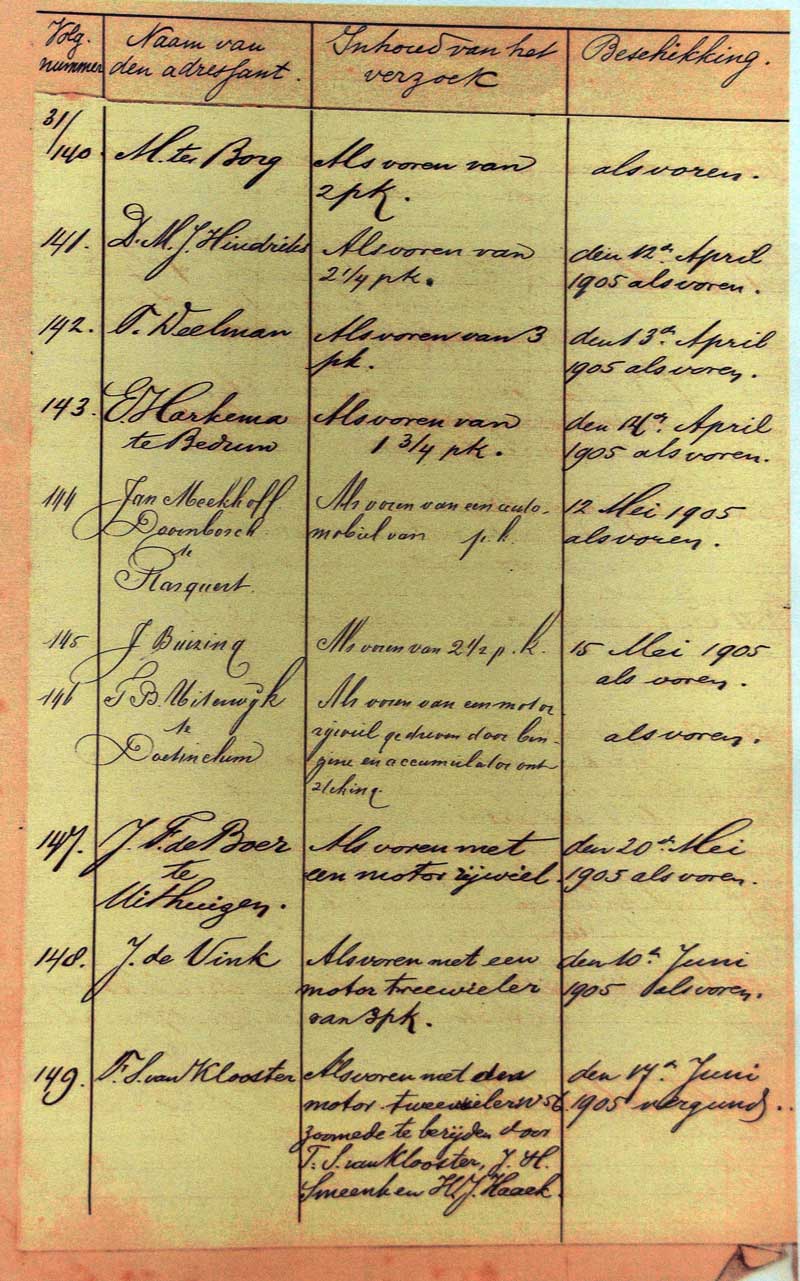 Volg. nummer
Naam van den adressant.
Inhoud van het verzoek
Beschikking.
31/
140. M. ter Borg Als voren van als voren.
2 pk.
141. D. M. J. Hindriks Als voren van den 12en April
2 1/4 pk. 1905 als voren.
142. Weelman Als voren van 3 den 13en April
pk. 1905 als voren.
143. E. Harkema Als voren van den 14en April
te Bedum 1 3/4 pk. 1905 als voren.
144 Jan Meekhoff Als voren van een auto- 12 Mei 1905
Doornbosch mobiel van p.k. als voren.
te
Rasquert.
145 J. Buizing Als voren van 2 1/2 p.k. 15 Mei 1905
als voren.
146 B. Uiterwijk Als voren van een motor
te rijwiel gedreven door ben- als voren.
Doetinchem zine en accumulator ont
147. J. F. de Boer Als voren met den 20en Mei
te een motor rijwiel. 1905 als voren.
Uithuizen.
148. J. de Vink Als voren met een den 10en Juni
motor tweewieler 1905 als voren.
van 3pk.
149. S. van Klooster Als voren met den den 17en Juni
motor tweewieler No 56 1905 vergund.
zoomede te berijden door
S. van Klooster, J. H.
Smeenk en H. J. Haaek.